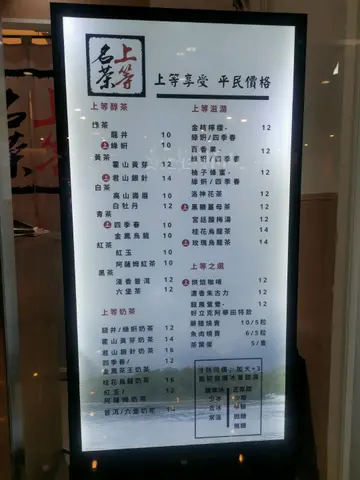 上等
名茶
上等享受 平民價格
上等醇茶
綠茶
龍井 10
上等 綠妍 10
黃茶
霍山黃芽 12
上等 君山銀針 14
白茶
高山壽眉 10
白牡丹 12
青茶
上等 四季春 10
金鳳烏龍 10
紅茶
紅玉 10
阿薩姆紅茶 10
黑茶
陳香普洱 12
六堡茶 12
上等奶茶
龍井/綠妍奶茶 12
霍山黃芽奶茶 14
君山銀針奶茶 16
四季春/ 12
金鳳茶王奶茶
桂花烏龍奶茶 16
紅玉/ 12
阿薩姆奶茶
普洱/六堡奶茶 12
上等滋潤
金桔檸檬- 12
綠妍/四季春
百香果- 12
綠妍/四季春
柚子蜂蜜- 12
綠妍/四季春
洛神花茶 12
上等 黑糖薑母茶 12
宮廷酸梅湯 12
桂花烏龍茶 14
上等 玫瑰烏龍茶 14
上等之選
上等 炭焙咖啡 12
濃香朱古力 12
龍鳳鴛鴦- 12
好立克阿華田特飲
藥膳燒賣 10/5粒
魚肉燒賣 6/5粒
茶葉蛋 5/隻